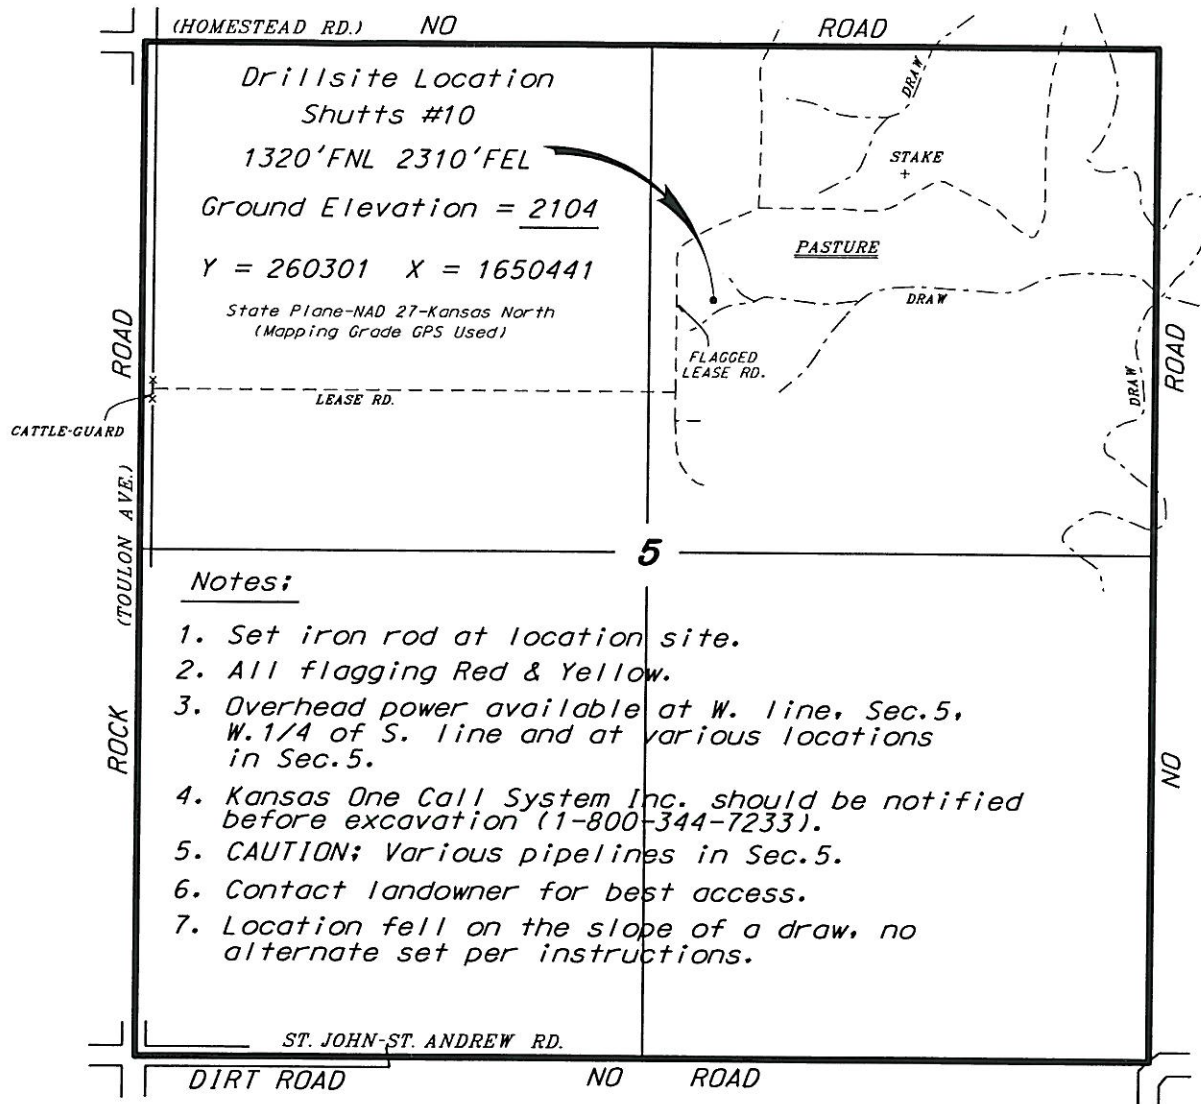 (HOMESTEAD RD.) NO ROAD
Drillsite Location
Shutts #10
1320'FNL 2310'FEL
Ground Elevation = 2104
Y = 260301 X = 1650441
State Plane-NAD 27-Kansas North
(Mapping Grade GPS Used)
DRAW
STAKE
PASTURE
DRAW
FLAGGED
LEASE RD.
DRAW
ROAD
ROAD
LEASE RD.
CATTLE-GUARD
(TOULON AVE.)
5
Notes:
1. Set iron rod at location site.
2. All flagging Red & Yellow.
3. Overhead power available at W. line, Sec.5,
W.1/4 of S. line and at various locations
in Sec.5.
4. Kansas One Call System Inc. should be notified
before excavation (1-800-344-7233).
5. CAUTION: Various pipelines in Sec.5.
6. Contact landowner for best access.
7. Location fell on the slope of a draw, no
alternate set per instructions.
ROCK
NO
ST. JOHN-ST. ANDREW RD.
DIRT ROAD NO ROAD